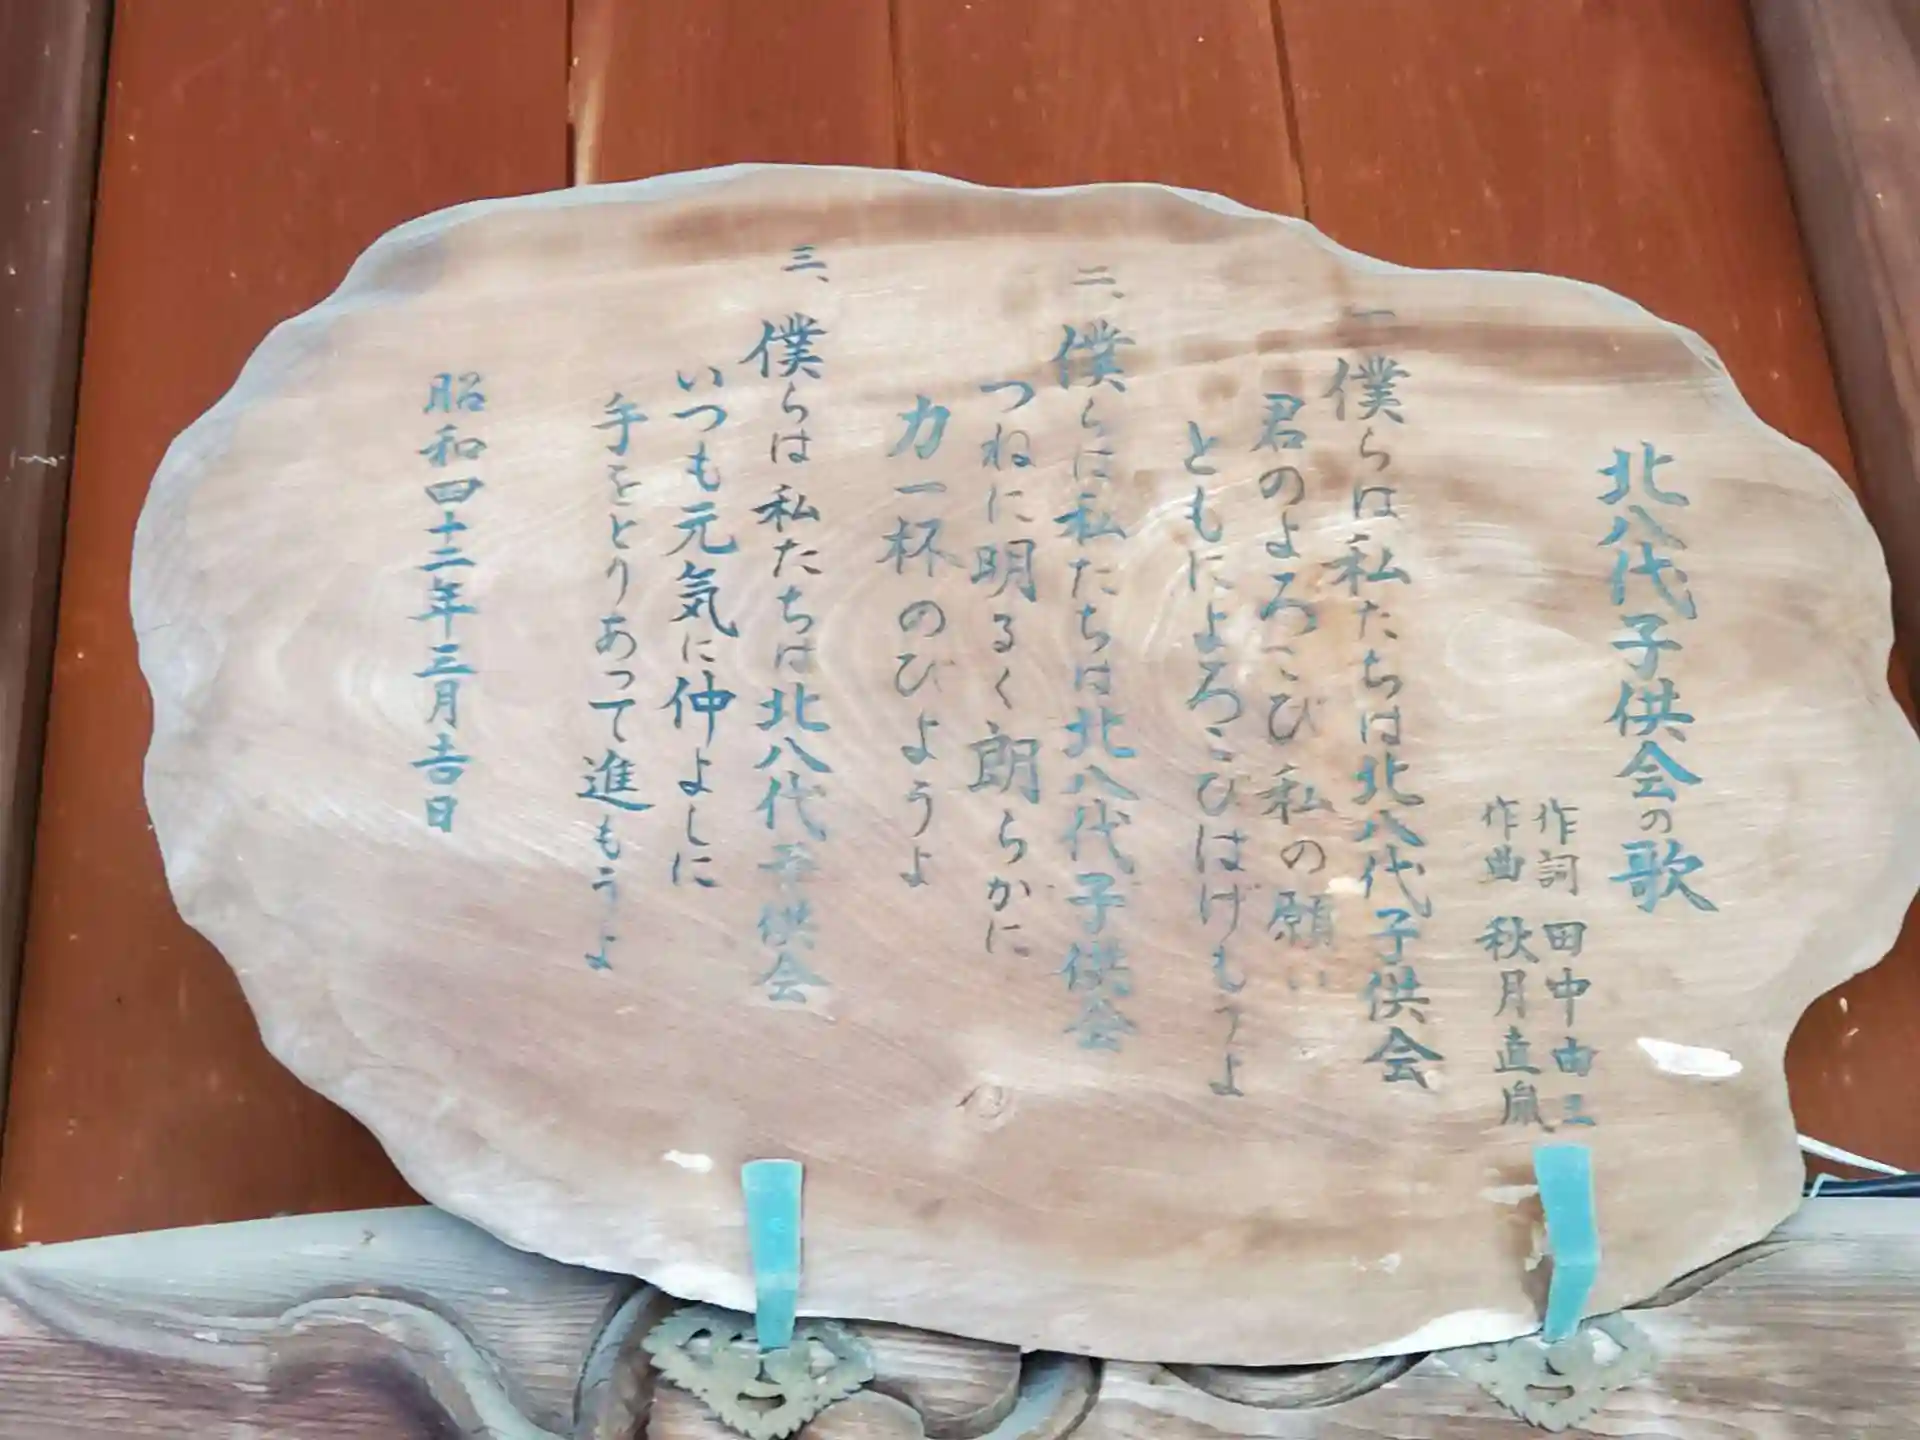 北八代子供会の歌
作詞 田中由三
作曲 秋月直胤
一 僕らは私たちは北八代子供会
君のよろこび私の願い
ともによろこびはげもうよ
二、僕らは私たちは北八代子供会
つねに明るく朗らかに
力一杯のびようよ
三、僕らは私たちは北八代子供会
いつも元気に仲よしに
手をとりあって進もうよ
昭和四十二年三月吉日